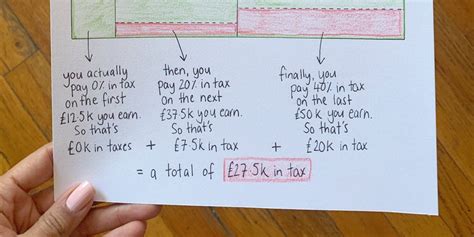 you actually
pay 0% in tax
on the first
£12.5k you earn.
So that's
£0k in taxes
then, you
pay 20% in tax
on the next
£37.5k you earn.
So that's
+ £7.5k in tax
finally, you
pay 40% in tax
on the last
£50k you earn.
So that's
+ £20k in tax
= a total of £27.5k in tax